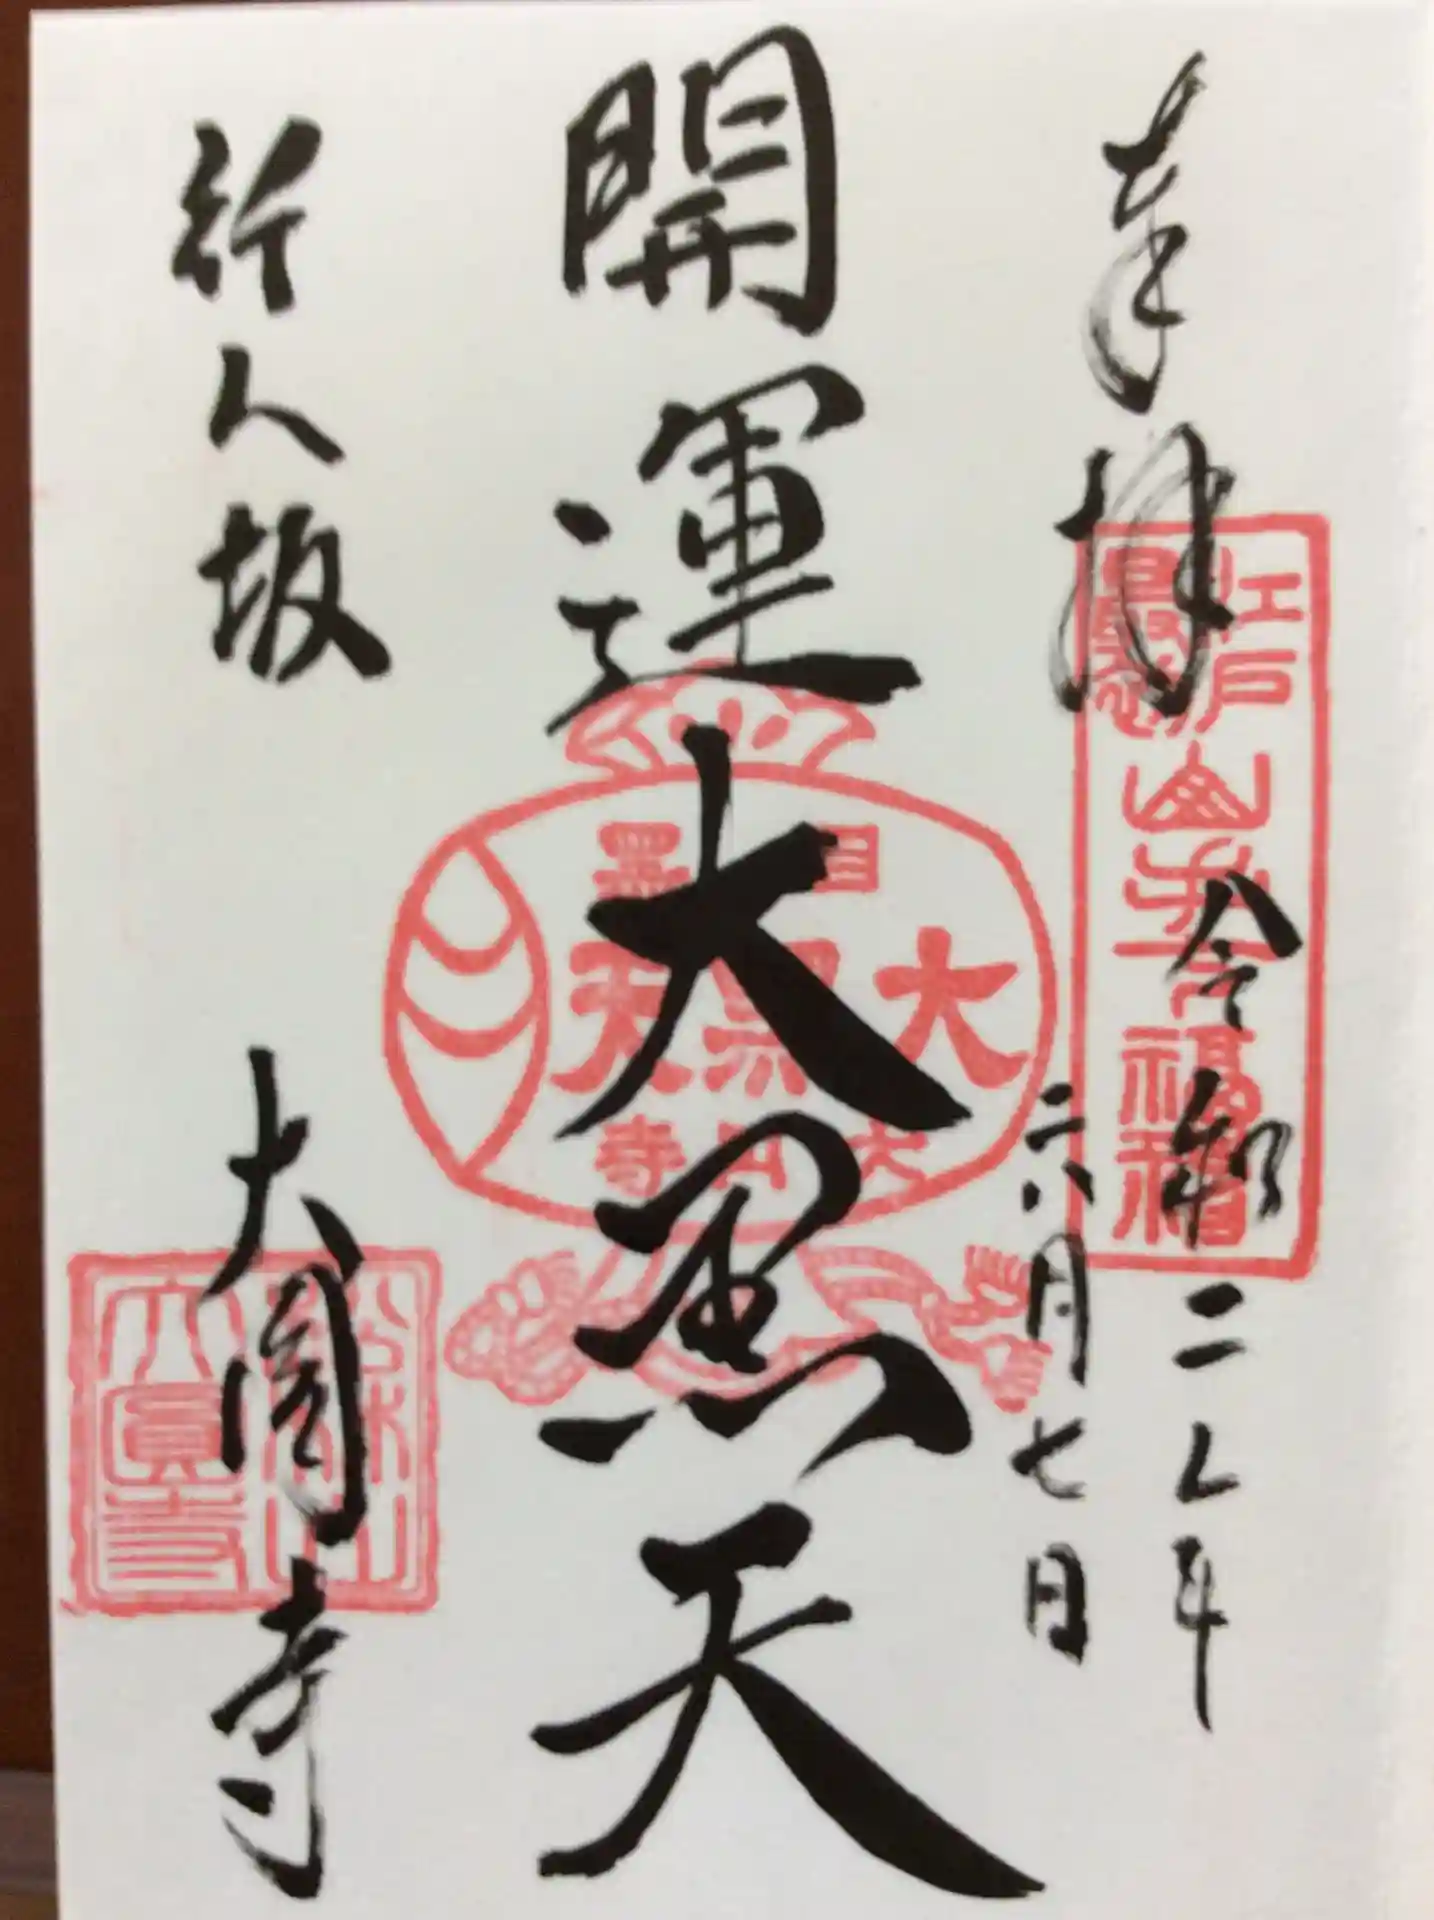 奉拝
令和二年
六月七日
開運大黒天
行人坂
大圓寺
江戸最初山手七福神
目黒
大黒天
大円寺
松林山
大圓寺